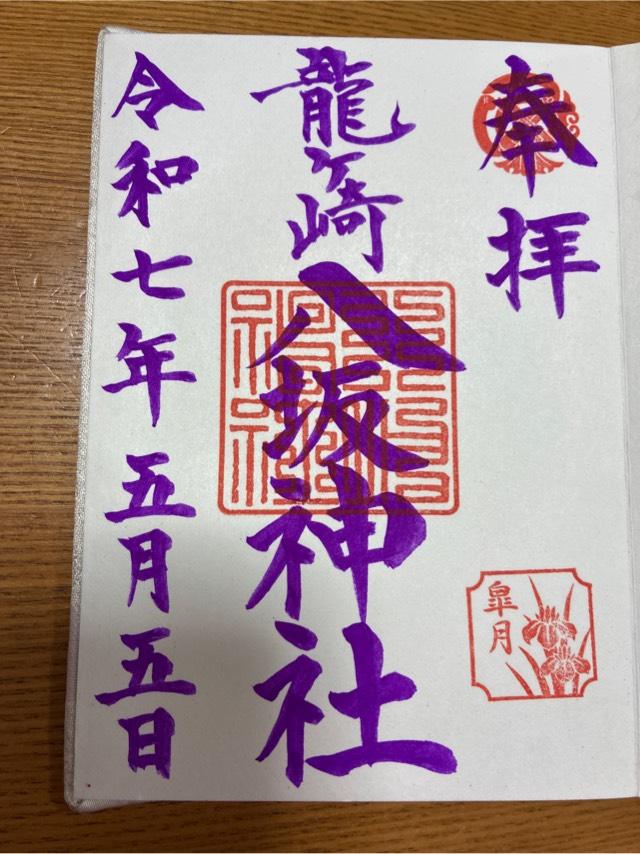 奉拝
龍ヶ崎
八坂神社
令和七年五月五日
皐月